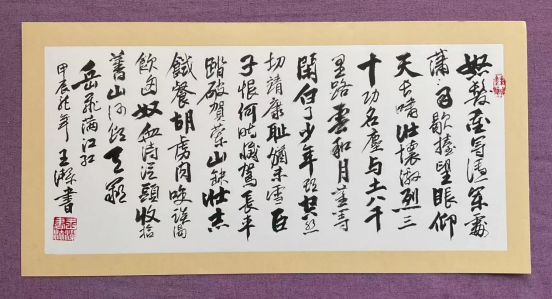 怒髮衝冠憑闌處
瀟瀟雨歇擡望眼仰
天長嘯壯懷激烈三
十功名塵與土八千
里路雲和月莫等
閑白了少年頭空悲
切靖康恥猶未雪臣
子恨何時滅駕長車
踏破賀蘭山缺壯志
飢餐胡虜肉笑談渴
飲匈奴血待從頭收拾
舊山河朝天闕
岳飛滿江紅
甲辰龍年王書